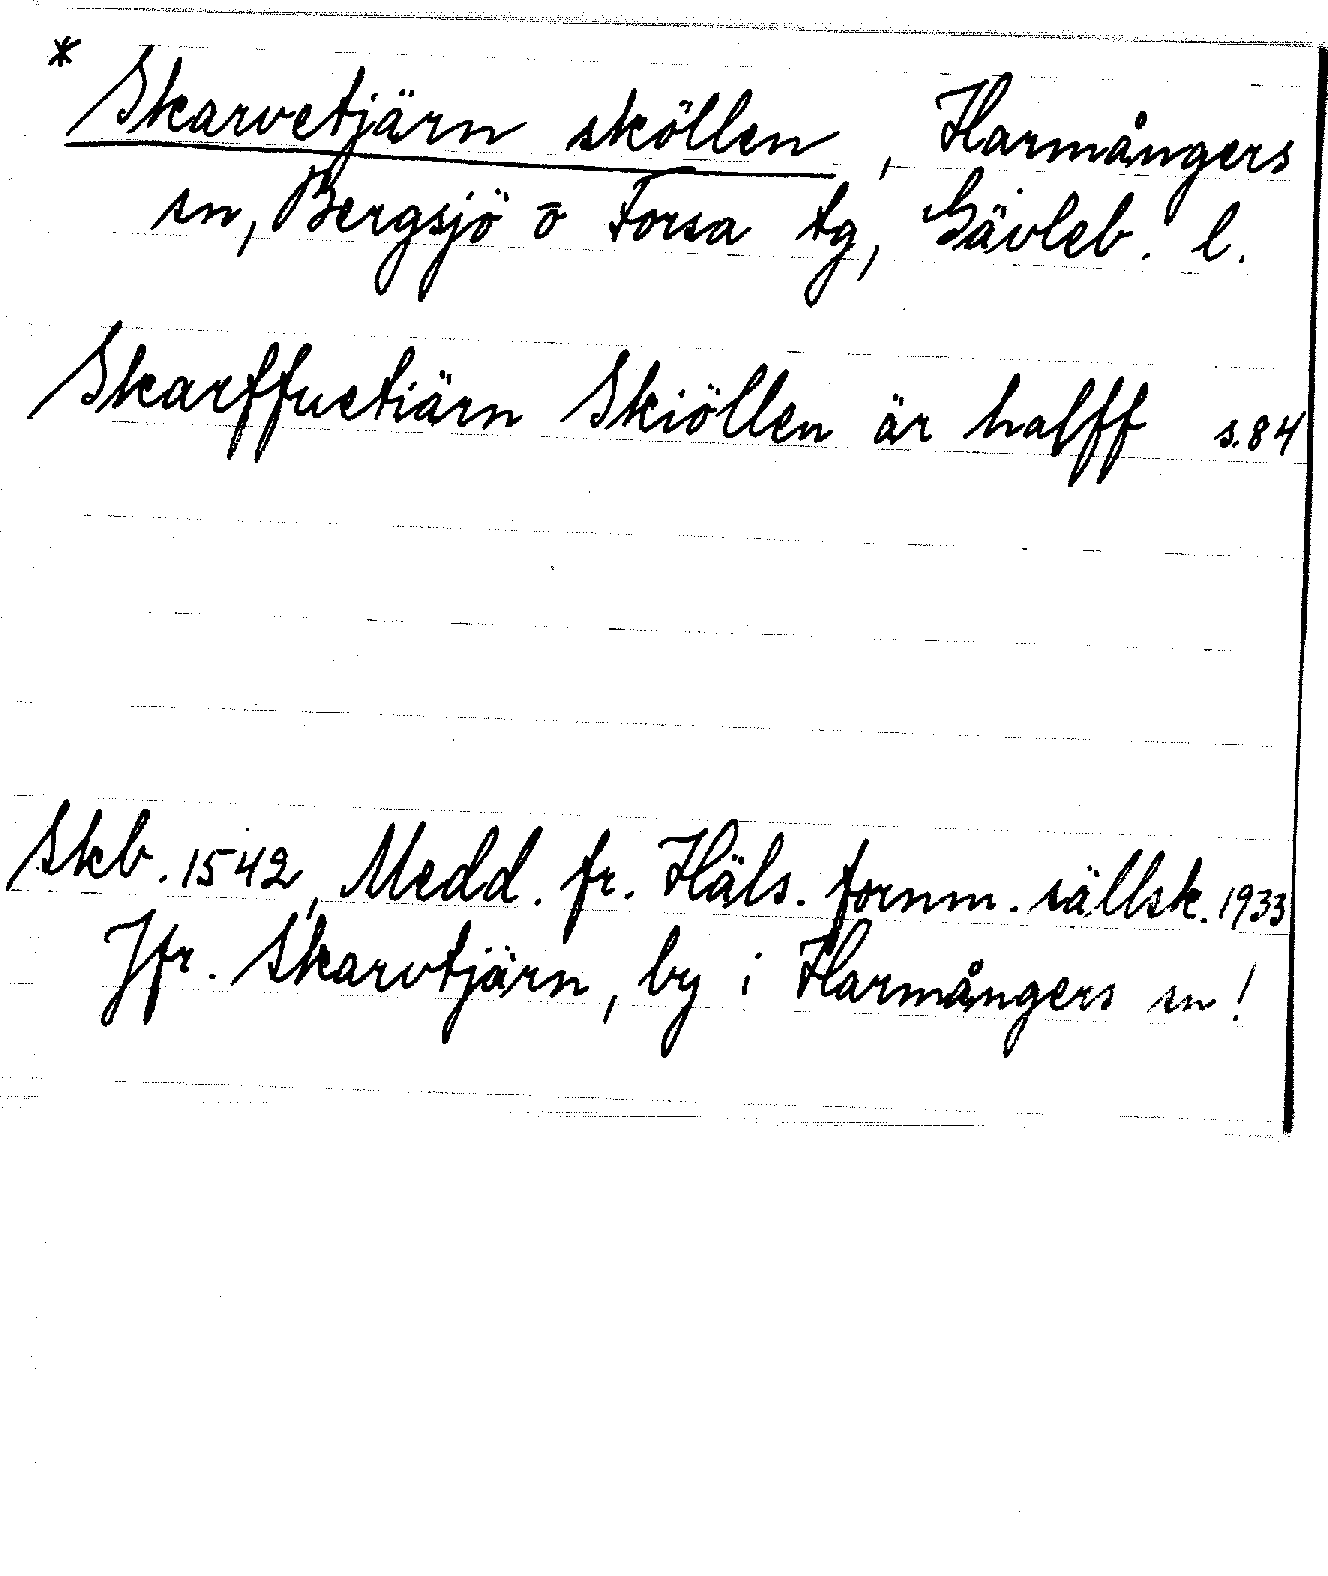 * Skarvetjärn sköllen, Harmångers
sn, Bergsjö o Forsa tg, Gävleb. l.
Skarffuetiärn Skiöllen är halff s.84
Skb. 1542, Medd. fr. Häls. fornm. sällsk. 1933
Jfr. Skarvtjärn, by i Harmångers sn!